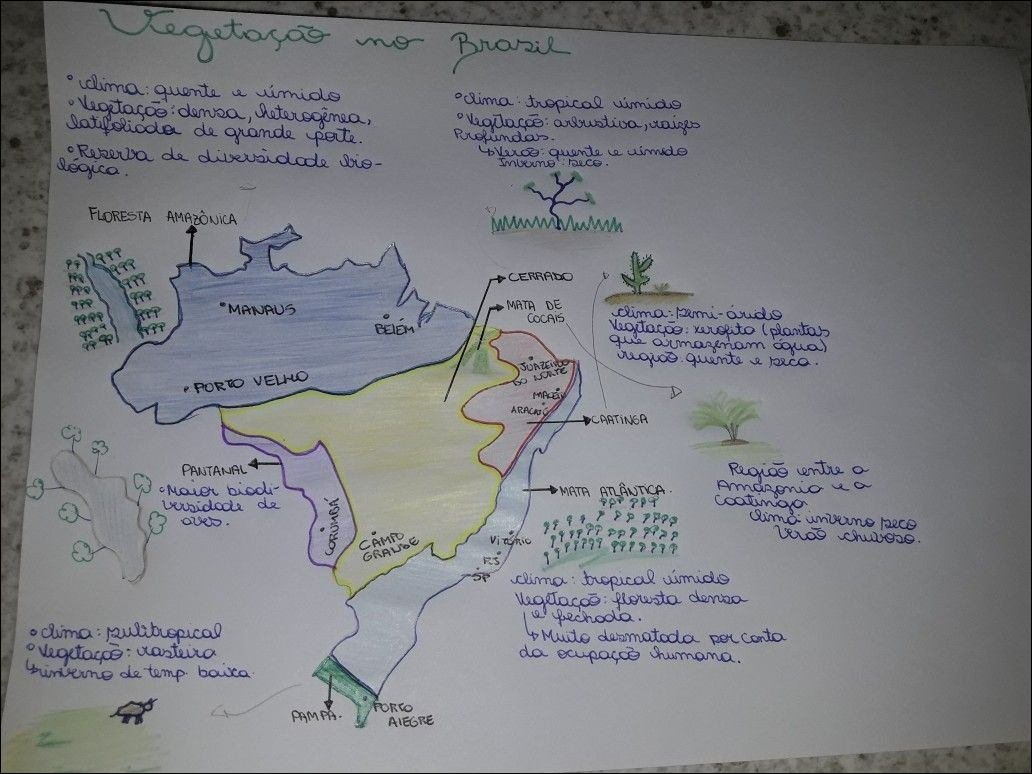 Vegetação no Brasil
• clima: quente e úmido
• Vegetação: densa, heterogênea,
latifoliada de grande porte.
• Reserva de diversidade bio-
lógica.
• clima: tropical úmido
• Vegetação: arbustiva, raízes
Profundas.
↳ Verão: quente e úmido
Inverno: seco.
FLORESTA AMAZÔNICA
MANAUS
BELÉM
PORTO VELHO
CERRADO
MATA DE
COCAIS
clima: semi-árido
Vegetação: xerofita (plantas
que armazenam água)
região: quente e seca.
JUAZEIRO
DO NORTE
MACEIÓ
ARACAJÚ
CAATINGA
PANTANAL
• Maior biodi-
versidade de
aves.
CORUMBÁ
CAMPO
GRANDE
MATA ATLÂNTICA.
VITÓRIO
RJ
SP
Região entre a
Amazonia e a
Caatinga.
clima: inverno seco
Verão chuvoso.
clima: tropical úmido
Vegetação: floresta densa
e fechada.
↳ Muito desmatada por conta
da ocupação humana.
• clima: sulitropical
• Vegetação: rasteira
↳ inverno de temp. baixa.
PAMPA.
PORTO
ALEGRE